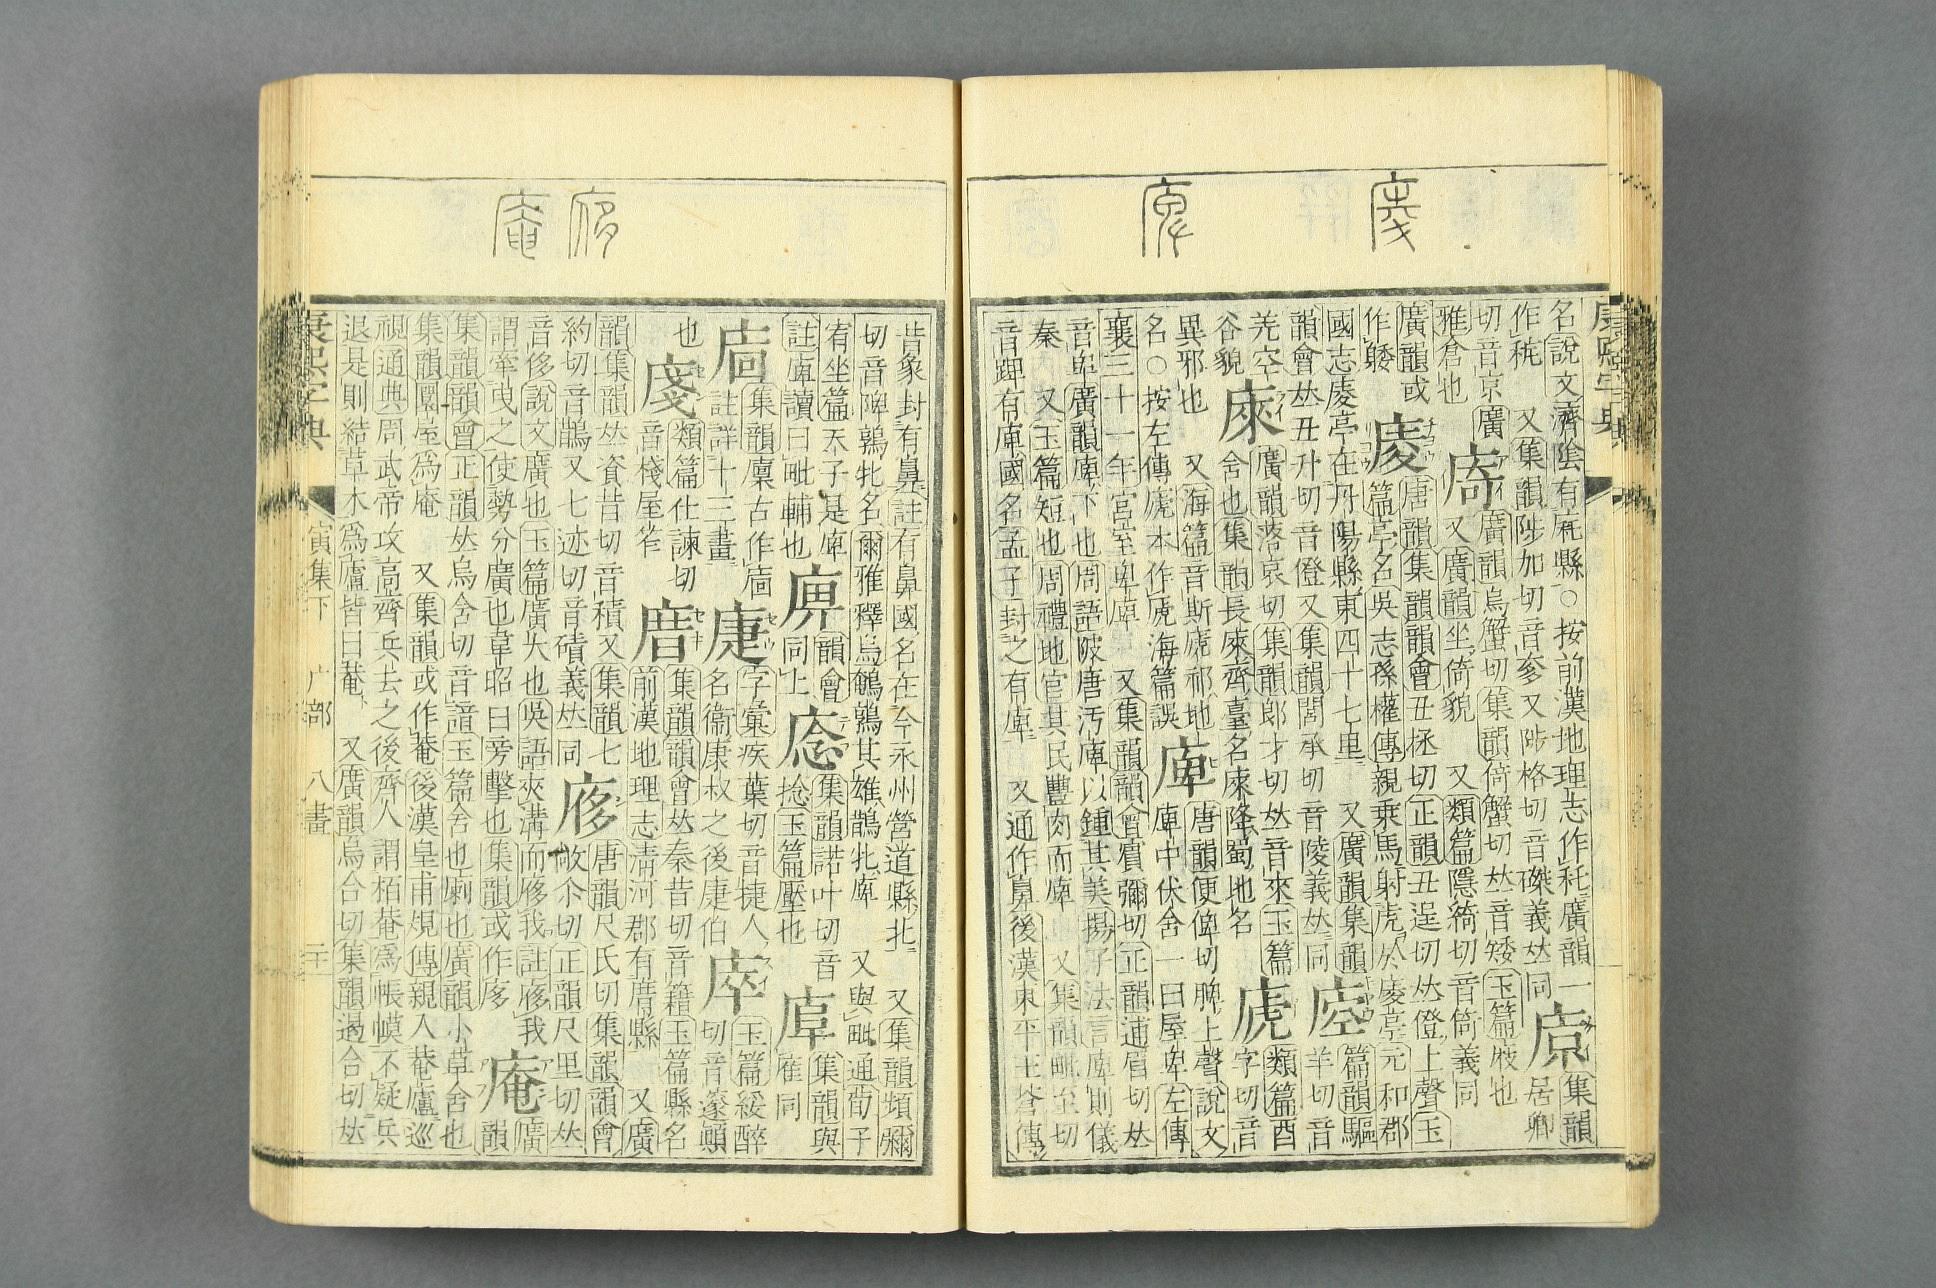 康熙字典
名說文濟陰有庛縣○按前漢地理志作秅廣韻一
作秺 又集韻陟加切音奓又陟格切音磔義𠀤同 㡕 集韻居卿
切音京廣雅倉也 庮 廣韻烏蟹切集韻倚蟹切𠀤音矮玉篇庪也
又廣韻坐倚貌 又類篇隱綺切音倚義同
廣韻或作䠞 庱 唐韻集韻韻會丑拯切正韻丑逞切𠀤偁上聲玉
篇亭名吳志孫權傳親乗馬射虎於庱亭元和郡
國志庱亭在丹陽縣東四十七里 又廣韻集韻
韻會𠀤丑升切音僜又集韻閭承切音陵義𠀤同 㡿 篇韻驅羊切音
羌空谷貌 庲 廣韻落哀切集韻郎才切𠀤音來玉篇
舍也集韻長庲齊臺名庲降蜀地名 㡾 類篇酉
字切音異邪也 又海篇音斯㡾祁地
名○按左傳㡾本作虒海篇誤 庳 唐韻便俾切脾上聲說文
庳中伏舍一曰屋卑左傳
襄三十一年宮室卑庳 又集韻韻會賔彌切正韻逋眉切𠀤
音卑廣韻庳下也周語陂唐汚庳以鍾其美揚子法言庳則儀
秦 又玉篇短也周禮地官其民豐肉而庳 又集韻毗至切
音𨽗有庳國名孟子封之有庳 又通作鼻後漢東平王蒼傳
昔象封有鼻註有鼻國名在今永州營道縣北 又集韻頻彌
切音陴鶉牝名爾雅釋鳥鵪鶉其雄鶛牝庳 又與毗通荀子
有坐篇天子是庳註庳讀曰毗輔也 㢏 韻會同上 㡵 集韻諾叶切音
捻玉篇壓也 㢀 集韻與雇同
㢈 集韻廩古作㢈註詳十三畫 㢗 字彙疾葉切音捷人
名衞康叔之後㢗伯 㢊 玉篇綏醉切音邃顚
也 㢃 類篇仕諫切音棧屋笮 㡽 集韻韻會𠀤秦昔切音籍玉篇縣名
前漢地理志淸河郡有㡽縣 又廣
韻集韻𠀤資昔切音積又集韻七約切音鵲又七迹切音磧義𠀤同 㢋 唐韻尺氏切集韻韻會
敞尒切正韻尺里切𠀤
音侈說文廣也玉篇廣大也吳語夾溝而㢋我註㢋我
謂牽曳之使勢分廣也韋昭曰旁擊也集韻或作㢁 庵 廣韻
集韻韻會正韻𠀤烏含切音諳玉篇舍也廟也廣韻小草舍也
集韻圜屋爲庵 又集韻或作菴後漢皇甫規傳親入菴廬巡
視通典周武帝攻高齊兵去之後齊人謂栢菴爲帳幙不疑兵
退是則結草木爲廬皆曰菴 又廣韻烏合切集韻遏合切𠀤
康熙字典 寅集下 广部 八畫 二十